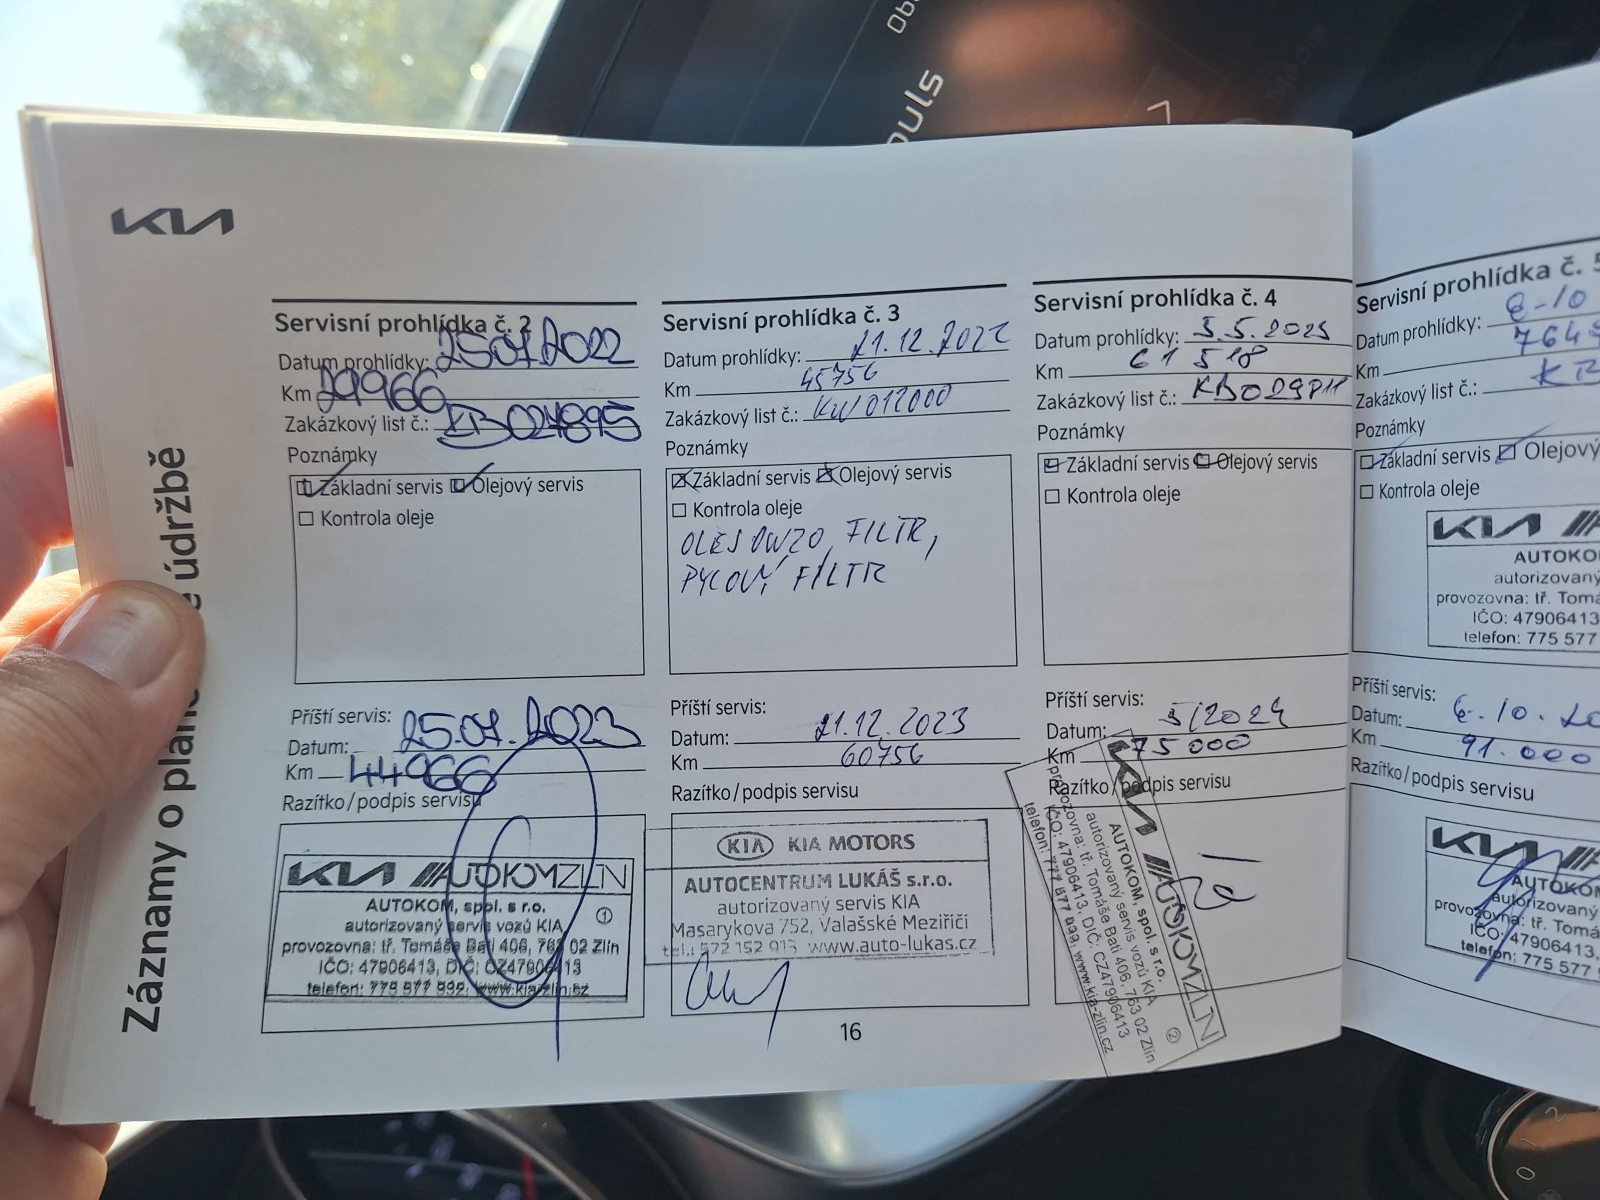 KIA
Záznamy o plán é údržbě
Servisní prohlídka č. 2
Datum prohlídky: 25.07.2022
Km 29966
Zakázkový list č.: KB027895
Poznámky
Základní servis Olejový servis
Kontrola oleje
Příští servis:
Datum: 25.07.2023
Km 44966
Razítko/podpis servisu
KIA AUTOKOMZLÍN
AUTOKOM, spol. s r.o. 1
autorizovaný servis vozů KIA
provozovna: tř. Tomáše Bati 406, 763 02 Zlín
IČO: 47906413, DIČ: CZ47906413
telefon: 775 577 932, www.kia-zlin.cz
Servisní prohlídka č. 3
Datum prohlídky: 21.12.2022
Km 45756
Zakázkový list č.: KW012000
Poznámky
Základní servis Olejový servis
Kontrola oleje
OLEJ 0W20, FILTR,
PYLOVÝ FILTR
Příští servis:
Datum: 21.12.2023
Km 60756
Razítko/podpis servisu
KIA KIA MOTORS
AUTOCENTRUM LUKÁŠ s.r.o.
autorizovaný servis KIA
Masarykova 752, Valašské Meziříčí
tel.: 572 152 913 www.auto-lukas.cz
Servisní prohlídka č. 4
Datum prohlídky: 5.5.2023
Km 61518
Zakázkový list č.: KB029811
Poznámky
Základní servis Olejový servis
Kontrola oleje
Příští servis:
Datum: 5/2024
Km 75000
Razítko/podpis servisu
KIA AUTOKOMZLÍN
AUTOKOM, spol. s r.o.
autorizovaný servis vozů KIA
provozovna: tř. Tomáše Bati 406, 763 02 Zlín
IČO: 47906413, DIČ: CZ47906413
telefon: 777 577 099, www.kia-zlin.cz 2
16
Servisní prohlídka č. 5
Datum prohlídky: 6-10
Km 7645
Zakázkový list č.: KB
Poznámky
Základní servis Olejový
Kontrola oleje
KIA
AUTOKO
autorizovaný
provozovna: tř. Tomá
IČO: 47906413
telefon: 775 577
Příští servis:
Datum: 6.10.20
Km 91.000
Razítko/podpis servisu
KIA
AUTOKO
autorizovaný
provozovna: tř. Tom
IČO: 47906413,
telefon: 775 577
puls